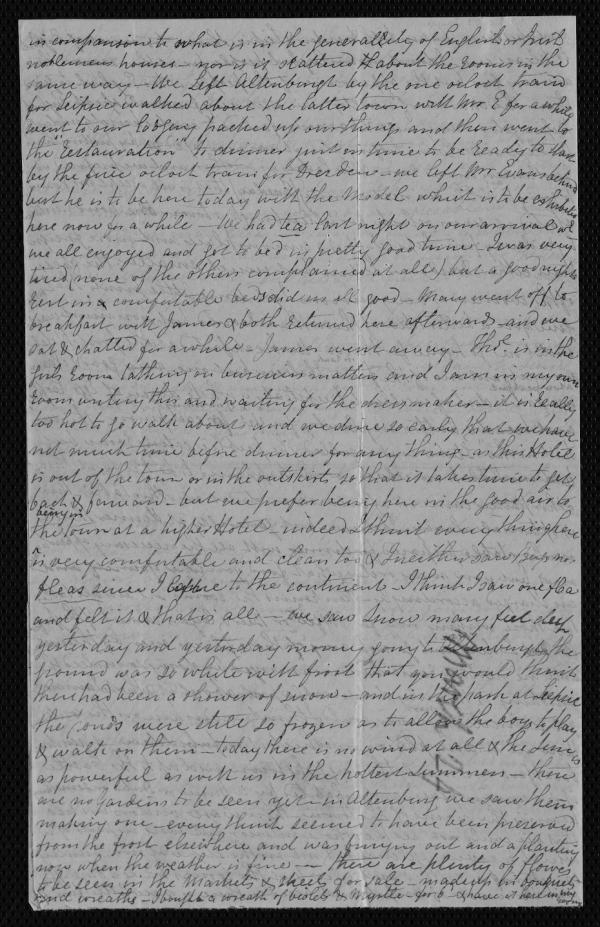 in comparison to what is in the generality of English or Irish
noblemens houses - nor is it scattered about the rooms in the
same way - We left Altenburgh by the one oclock train
for Leipsic walked about the latter town with Mr E for a while
went to our Lodging packed up our things and then went to
the "restauration" to dinner just in time to be ready to start
by the five oclock train for Dresden - we left Mr Evans behind
but he is to be here today with the Model which is to be exhibited
here now for a while - We had tea last night on our arrival wh
we all enjoyed and got to bed in pretty good time - I was very
tired none of the others complained at all) but a good nights
rest in & comfortable beds did us all good - Mary went off to
breakfast with James & both returned here afterwards - and we
sat & chatted for a while - James went away - Thos. is in the
girls room talking on business matters and I am in my own
room writing this and waiting for the dressmaker - it is really
too hot to go walk about and we dine so early that we have
not much time before dinner for any thing - as this Hotel
is out of the town or in the outskirts so that it takes time to get
back & forward - but we prefer being here in the good air to
being in
the town at a higher Hotel - indeed I think every thing here
is very comfortable and clean too & I neither saw Bugs nor
fleas since I came to the continent - I think I saw one flea
and felt it & that is all - we saw Snow many feet deep
yesterday and yesterday morning going to Altenburgh the
ground was so white with frost that you would think
there had been a shower of snow - and in the park at Leipsic
the ponds were still so frozen as to allow the boys to play
& walk on them - today there is no wind at all & the Sun is
as powerful as with us in the hottest Summers - there
are no gardens to be seen yet - in Altenburg we saw them
making one - every thing seemed to have been preserved
from the frost elsewhere and was bringing out and aplanting
now when the weather is fine - there are plenty of flowers
to be seen in the Markets & streets for sale - made up in bouquets
and wreaths - I bought a wreath of violets & Myrtle - for 6d & have it here in my
room